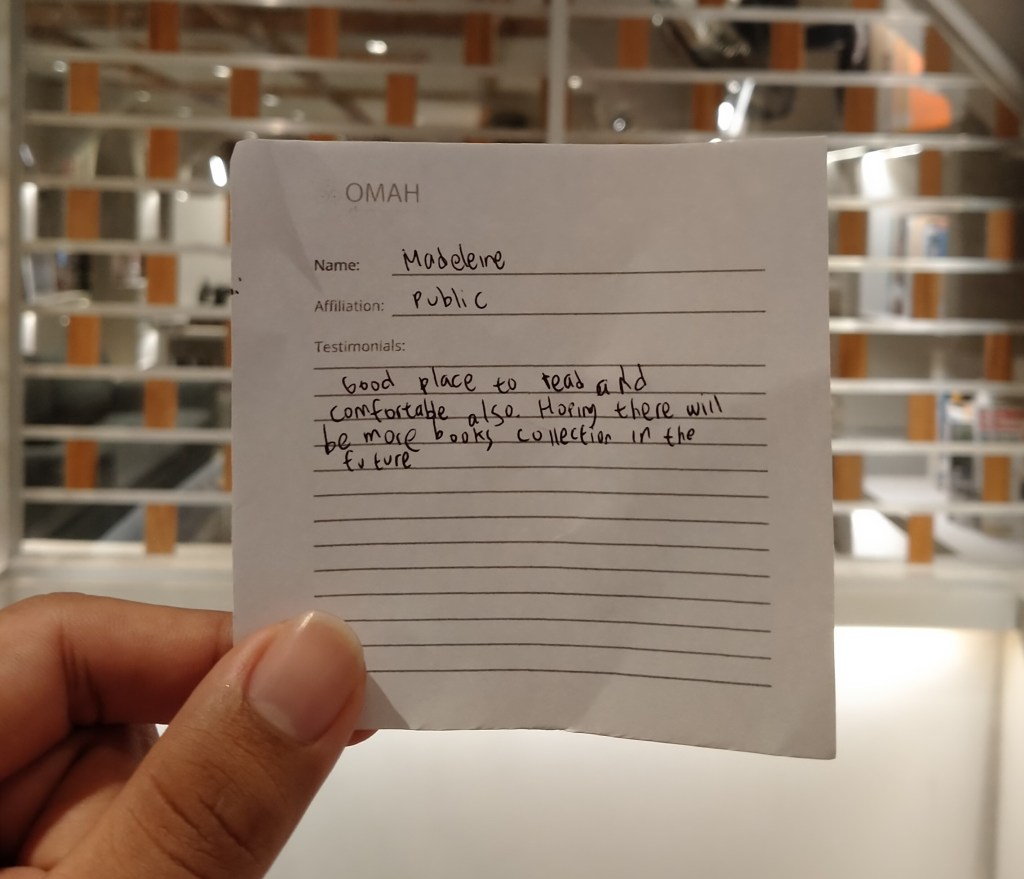 OMAH
Name: Madeleine
Affiliation: Public
Testimonials:
Good place to read and
comfortable also. Hoping there will
be more books collection in the
future